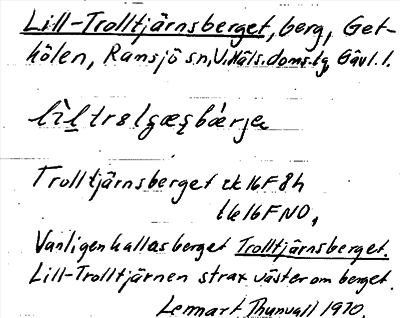 Lill-Trolltjärnsberget, berg, Get-
hölen, Ransjö sn, V. Häls. doms.lg, Gävl. l.
Trolltjärnsberget ek 16F 8h
tk 16F NO,
Vanligen kallas berget Trolltjärnsberget.
Lill-Trolltjärnen strax väster om berget.
Lennart Thunvall 1970.